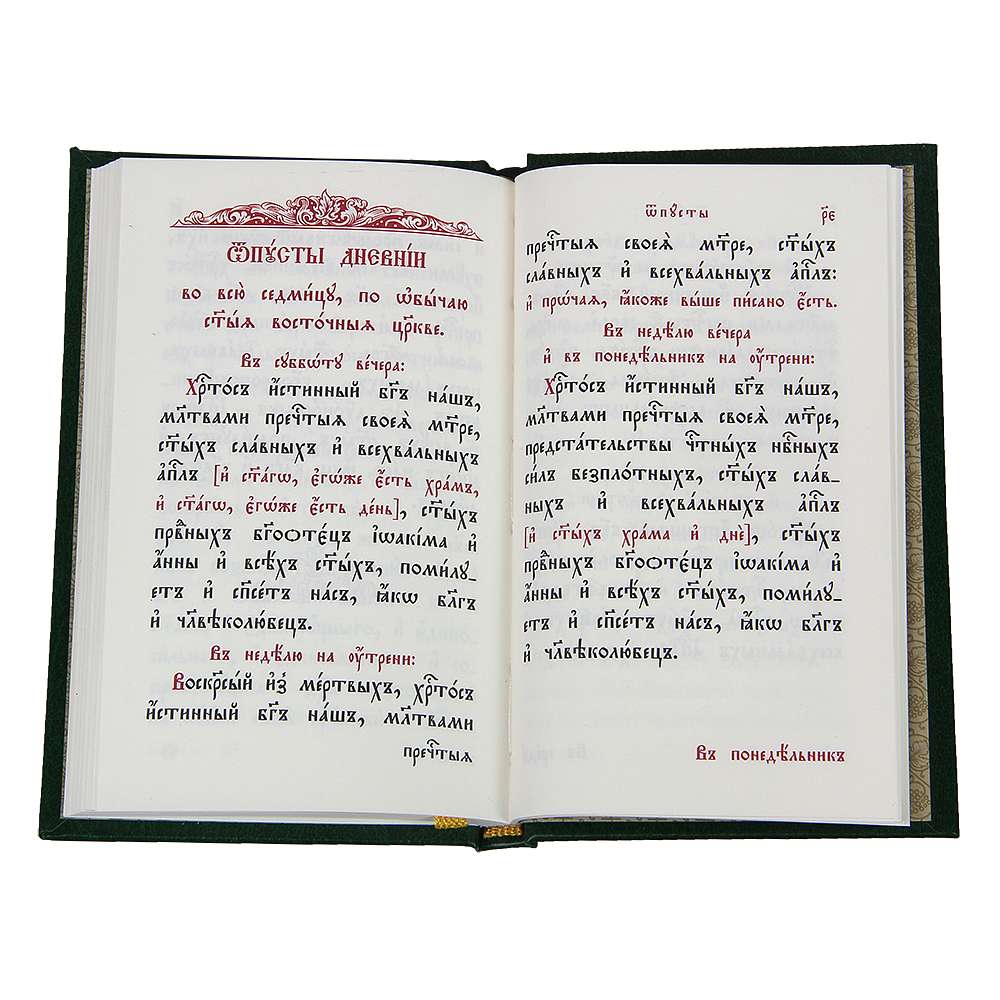 Ѿпꙋ́сты дневні́и
во всю̀ седми́цꙋ, по ѡ҆бы́чаю
ст҃ы́ѧ восто́чныѧ цр҃кве.
Въ сꙋббѡ́тꙋ ве́чера:
Хрⷭ҇то́съ и҆́стинный бг҃ъ на́шъ,
мл҃твами пречⷭ҇тыѧ своеѧ̀ мт҃ре,
ст҃ы́хъ сла́вныхъ и҆ всехва́льныхъ
а҆пⷭ҇лъ [и҆ ст҃а́гѡ, є҆гѡ́же є҆́сть хра́мъ,
и҆ ст҃а́гѡ, є҆гѡ́же є҆́сть де́нь], ст҃ы́хъ
првⷣныхъ бг҃оѻте́цъ і҆ѡакі́ма и҆
а҆́нны и҆ всѣ́хъ ст҃ы́хъ, поми́лꙋ_
етъ и҆ сп҃се́тъ на́съ, ꙗ҆́кѡ бл҃гъ
и҆ чл҃вѣколю́бецъ.
Въ недѣ́лю на ᲂу҆́трени:
Воскрⷭ҇ый и҆з̾ ме́ртвыхъ, хрⷭ҇то́съ
и҆́стинный бг҃ъ на́шъ, мл҃твами
пречⷭ҇тыѧ
ѿпꙋсты р҃е
пречⷭ҇тыѧ своеѧ̀ мт҃ре, ст҃ы́хъ
сла́вныхъ и҆ всехва́льныхъ а҆пⷭ҇лъ:
и҆ прѡ́чаѧ, ꙗ҆́коже выше пи́сано є҆́сть.
Въ недѣ́лю ве́чера
и҆ въ понедѣ́льникъ на ᲂу҆́трени:
Хрⷭ҇то́съ и҆́стинный бг҃ъ на́шъ,
мл҃твами пречⷭ҇тыѧ своеѧ̀ мт҃ре,
предста́тельствы чⷭ҇тны́хъ нбⷭ҇ныхъ
си́лъ безпло́тныхъ, ст҃ы́хъ сла́в_
ныхъ и҆ всехва́льныхъ а҆пⷭ҇лъ
[и҆ ст҃ы́хъ хра́ма и҆ днѐ], ст҃ы́хъ
првⷣныхъ бг҃оѻте́цъ і҆ѡакі́ма и҆
а҆́нны и҆ всѣ́хъ ст҃ы́хъ, поми́лꙋ_
етъ и҆ сп҃се́тъ на́съ, ꙗ҆́кѡ бл҃гъ
и҆ чл҃вѣколю́бецъ.
Въ понедѣ́льникъ